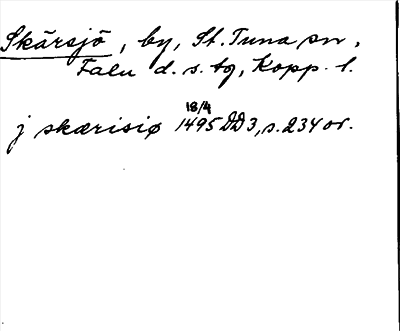 Skärsjö, by, St. Tuna sn,
Falu d. s. tg, Kopp. l.
18/4
j skærisiø 1495 DD 3, s. 234 or.